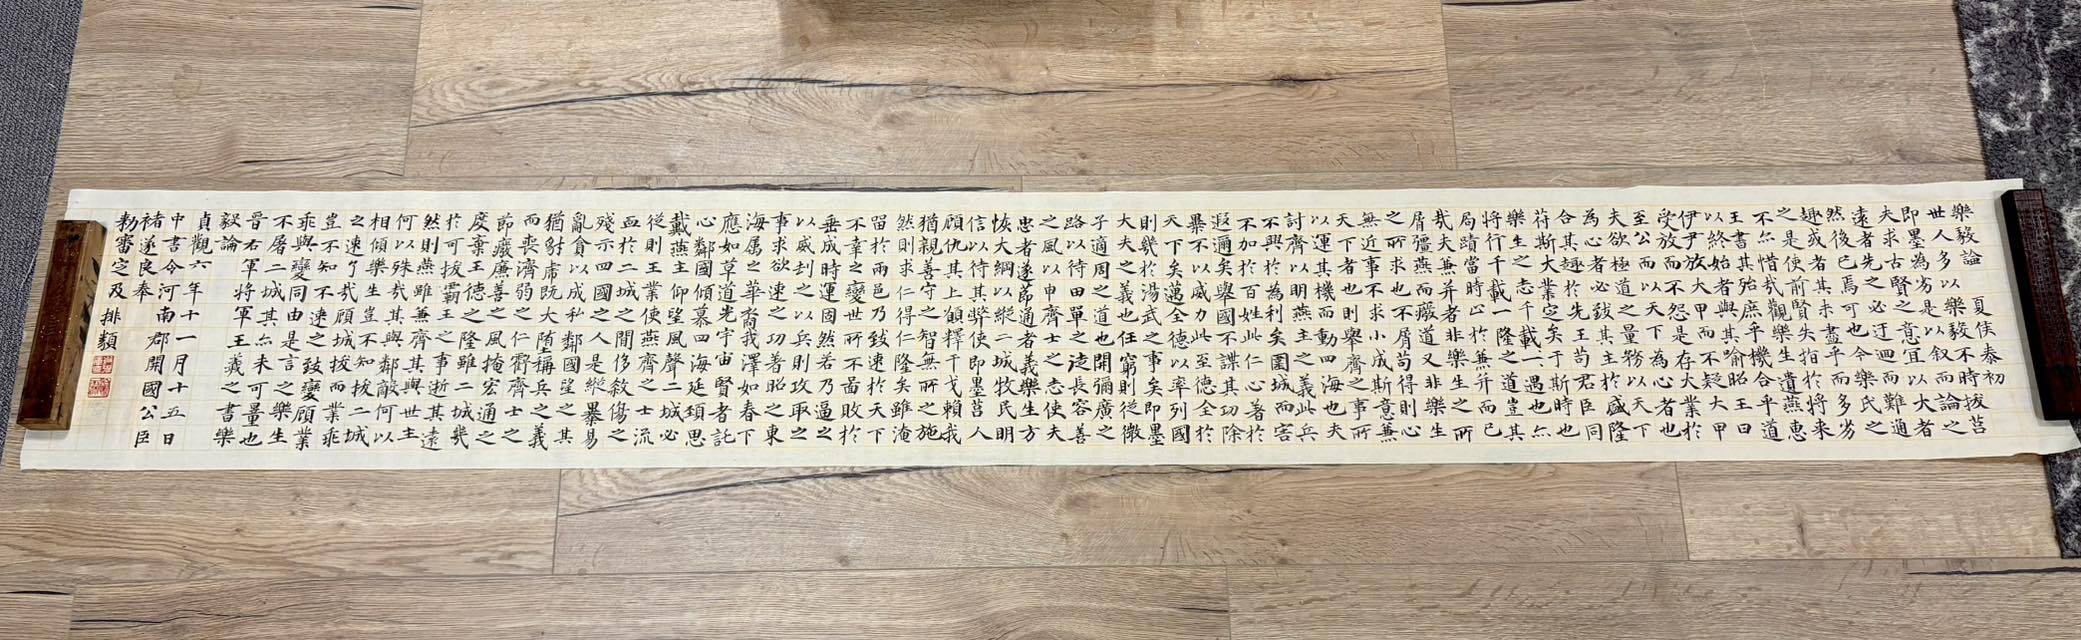 樂毅論　夏侯泰初
世人多以樂毅不時拔莒
即墨為劣是以叙而論之
夫求古賢之意宜以大者
遠者先之必迂迴而難通
然後已焉可也今樂氏之
趣或者其未盡乎而多劣
之是使前賢失指於將来
不亦惜哉觀樂生遺燕惠
王書其殆庶乎機合乎道
以終始者與其喻昭王曰
伊尹放大甲而不疑大甲
受放而不怨是存大業於
至公而以天下為心者也
夫欲極道之量務以天下
為心者必致其主於盛隆
合其趣於先王苟君臣同
符斯大業定矣于斯時也
樂生之志千載一遇也亦
將行千載一隆之道豈其
局蹟當時止於兼并而已
哉夫兼并者非樂生之所
屑彊燕而廢道又非樂生
之所求也不屑苟得則心
無近事不求小成斯意兼
天下者也則舉齊之事所
以運其機而動四海也夫
討齊以明燕主之義此兵
不興於為利矣圍城而害
不加於百姓此仁心著於
遐邇矣舉國不謀其功除
暴不以威力此至德全於
天下矣邁全德以率列國
則幾於湯武之事矣即墨
大夫之義也任窮則從微
子適周之道也開彌廣之
路以待田單之徒長容善
之風以申齊士之志使夫
忠者遂節通者義樂生方
恢大綱以縱二城牧民明
信以待其弊使即墨莒人
顧仇其上願釋干戈賴我
猶親善守之智無所之施
然則求仁得仁隆矣雖淹
留於兩邑乃致速於天下
不幸之變世所不啚敗於
垂成時運國然若乃逼之
以威刦之以兵則攻取之
事求欲速之功著昭之東
海屬之華裔我澤如春下
應如草道光宇宙賢者託
心鄰國傾慕四海延頚思
戴燕主仰望風聲二城必
從則王業使燕齊之士流
血於二城之間侈殺傷之
殘示四國之人是縱暴易
亂貪以成私鄰國望之其
猶豺虎既大墮稱兵之義
而喪濟弱之仁虧齊士之
節廢廉善之風掩宏通之
度棄王德之隆雖二城幾
於可拔霸王之事逝其遠
然則燕雖兼齊其與世主
何以殊哉其與鄰敵何以
相傾樂生豈不知拔二城
之速了哉顧城拔而業乖
豈不知不速之致變顧業
乖與變同由是言之樂生
不屠二城其亦未可量也
晉右軍將軍王羲之書樂
毅論
貞觀六年十一月十五日
中書令河南郡開國公臣
褚遂良奉
勅審定及排類